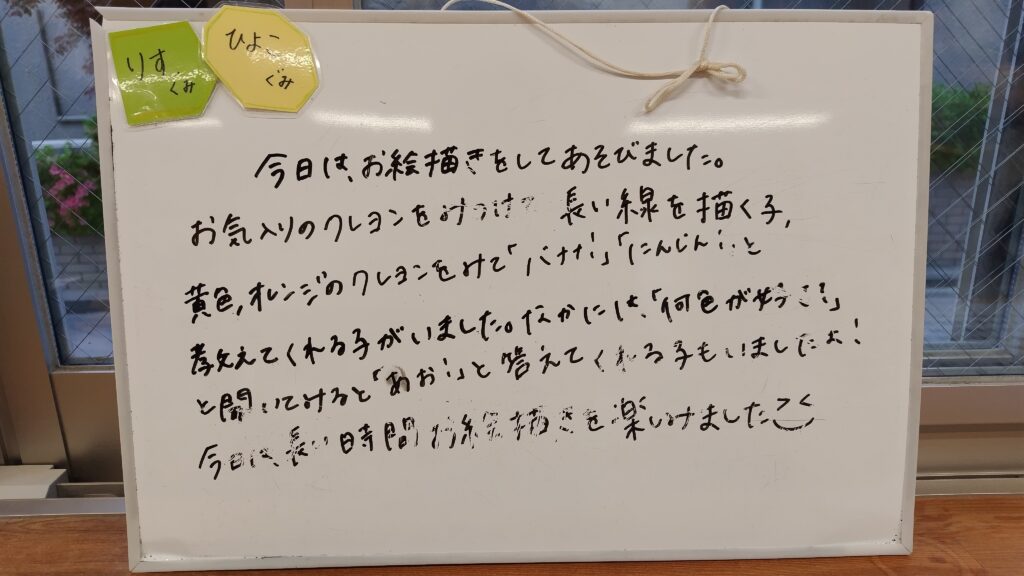 りす
ぐみ
ひよこ
ぐみ
今日は、お絵描きをしてあそびました。
お気入りのクレヨンをみつけ 長い線を描く子,
黄色,オレンジのクレヨンをみて「バナナ!」「にんじん!」と
教えてくれる子がいました。なかには、「何色が好き?」
と聞いてみると「あお!」と答えてくれる子もいましたよ!
今日は長い時間お絵描きを楽しみました